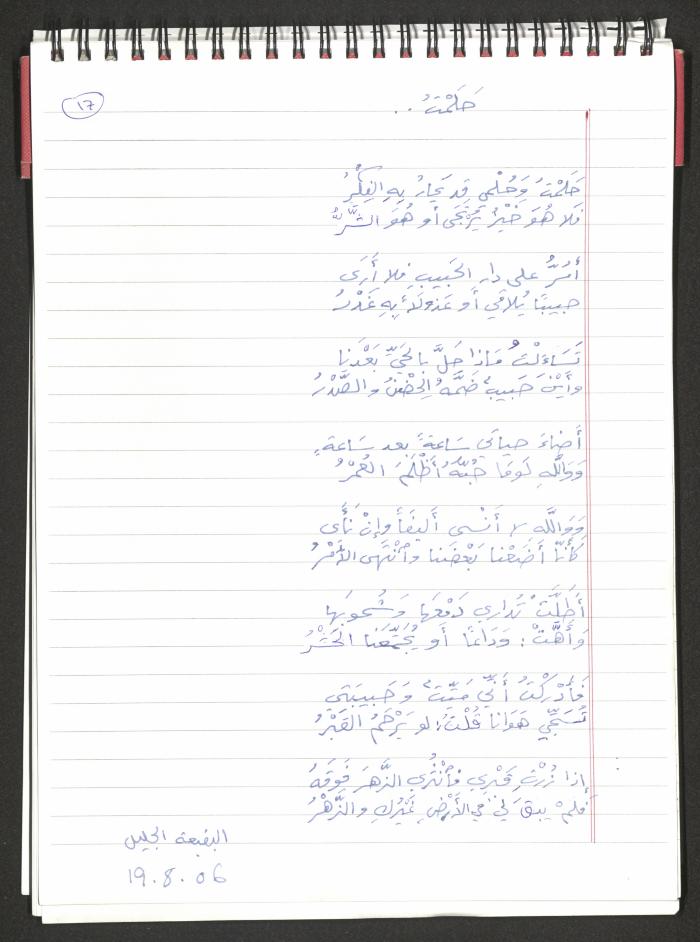 ١٧
حَلَمْتُ ..
حَلَمْتُ وَحُلْمِي قد يَحارُ بِهِ الفِكْرُ
فَلا هُوَ خَيْرٌ يُرْتَجَى أو هُوَ الشَّرُّ
أَمُرُّ على دارِ الحَبيبِ فلا أَرَى
حبيبًا يُلاقي أو عَذولًا بِهِ غَدْرُ
تَسَاءَلْتُ مَاذا حَلَّ بالحَيِّ بَعْدَنا
وأَيْنَ حَبيبٌ ضَمَّهُ الحِضْنُ والصَّدْرُ
أَضاءَ حياتي سَاعَةً بعد سَاعَةٍ
وَوَاللَّهِ لَوْمَا حُبُّهُ أَظْلَمَ العُمْرُ
وَوَاللَّهِ لا أَنْسى أَليفَاً وإنْ نَأَى
كَأَنَّا أَضَعْنا بَعْضَنا وٱنْتَهى الأَمْرُ
أَطَلَّتْ تُداري دَمْعَها وَشُحوبَها
وَأَهَّتْ: وَدَاعًا أو يُجَمِّعَنا الحَشْرُ
فَأَدْرَكْتُ أَنِّي مَيِّتٌ وَحَبيبَتي
تُسَجِّي هَوَانا قُلْتُ: لو يَرْحَمُ القَبْرُ
إذا زُرْتِ قَبْري فٱنْثُري الزَّهرَ فَوقَهُ
فلمْ يبقَ لي في الأَرْضِ غَيْرُكِ والزَّهْرُ
البقيعة الجليل
19.8.06